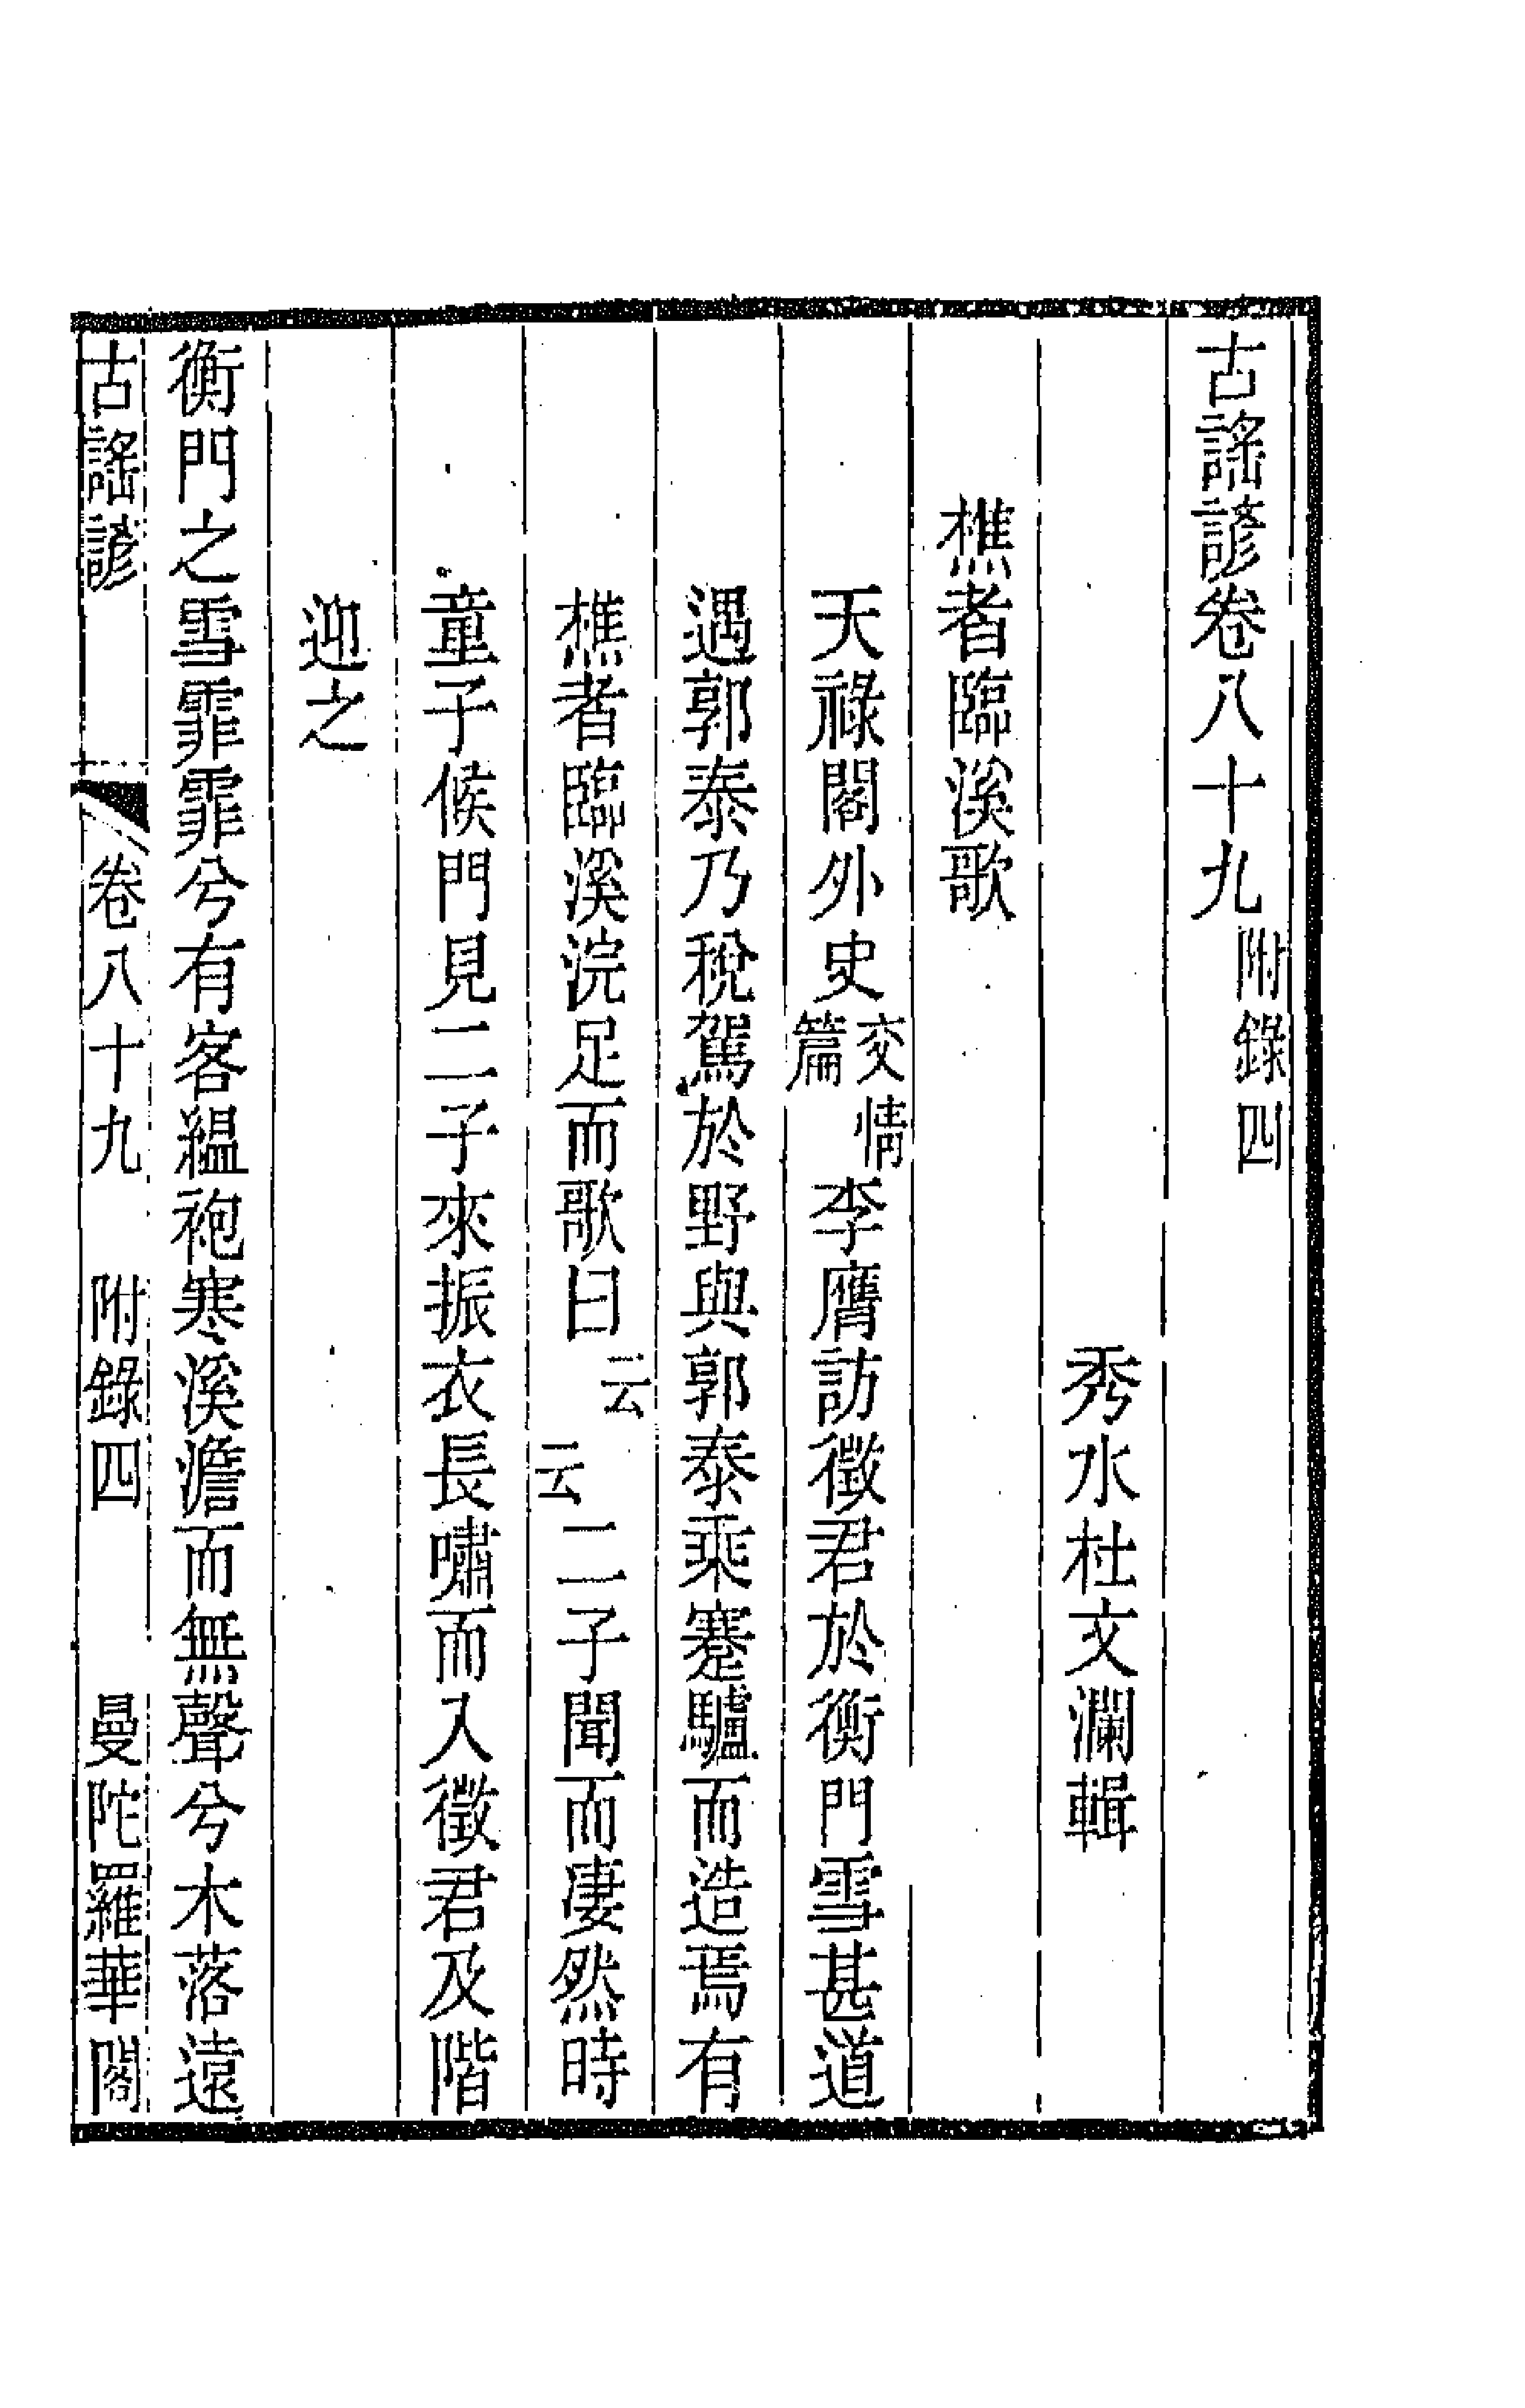 古謠諺卷八十九附錄四
秀水杜文瀾輯
樵者臨溪歌
天祿閣外史交情篇李膺訪徵君於衡門雪甚道
遇郭泰乃稅駕於野與郭泰乘蹇驢而造焉有
樵者臨溪浣足而歌曰云云二子聞而凄然時
童子候門見二子來振衣長嘯而入徵君及階
迎之
衡門之雪霏霏兮有客縕袍寒溪澹而無聲兮木落遠
古謠諺 卷八十九 附錄四 曼陀羅華閣